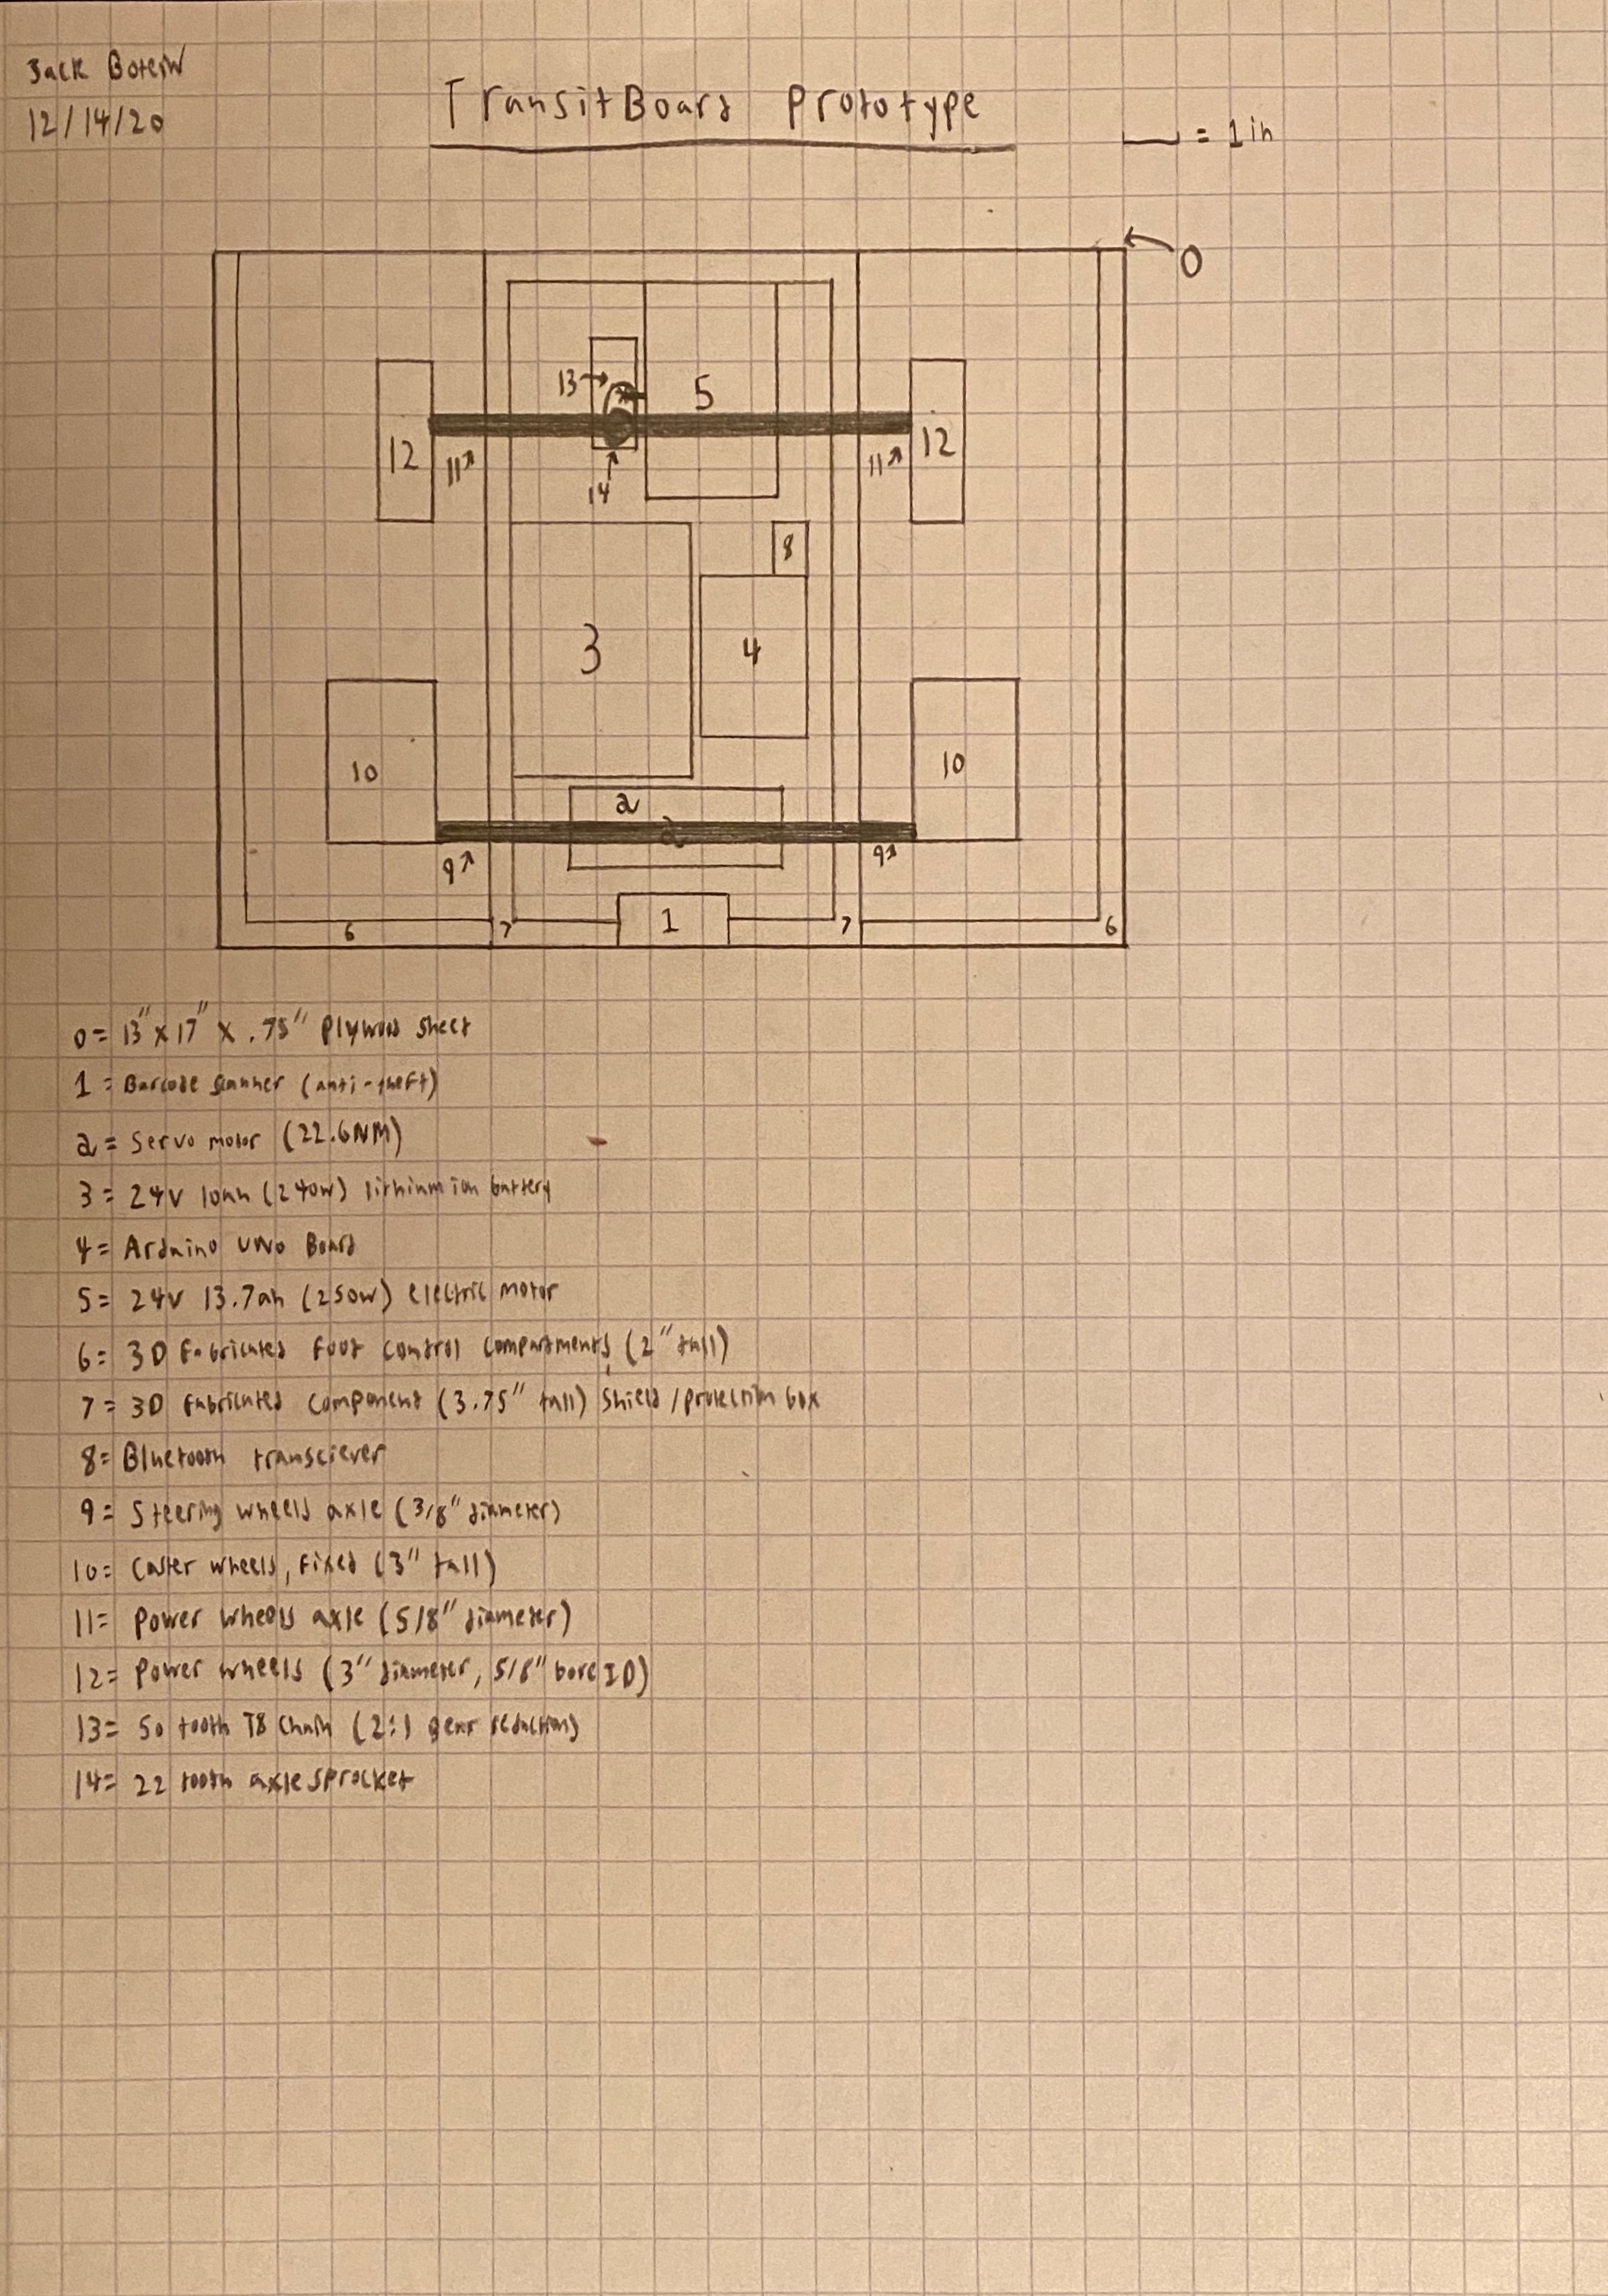 Jack Botein
12/14/20
TransitBoard Prototype
= 1 in
0
13→
5
12
11
14
11
12
8
3
4
10
10
a
a
9
9
1
6
7
7
6
0= 13" x 17" x .75" Plywood sheet
1 = Barcode scanner (anti-theft)
a = Servo motor (22.6NM)
3 = 24V 10ah (240w) lithium ion battery
4= Arduino UNO Board
5= 24V 13.7ah (250w) electric motor
6= 3D Fabricated foot control compartments (2" tall)
7= 3D Fabricated component (3.75" tall) shield/protection box
8= Bluetooth transciever
9= Steering wheels axle (3/8" diameter)
10= Caster wheels, Fixed (3" tall)
11= Power wheels axle (5/8" diameter)
12= Power wheels (3" diameter, 5/8" bore ID)
13= 50 tooth T8 Chain (2:1 gear reduction)
14= 22 tooth axle sprocket